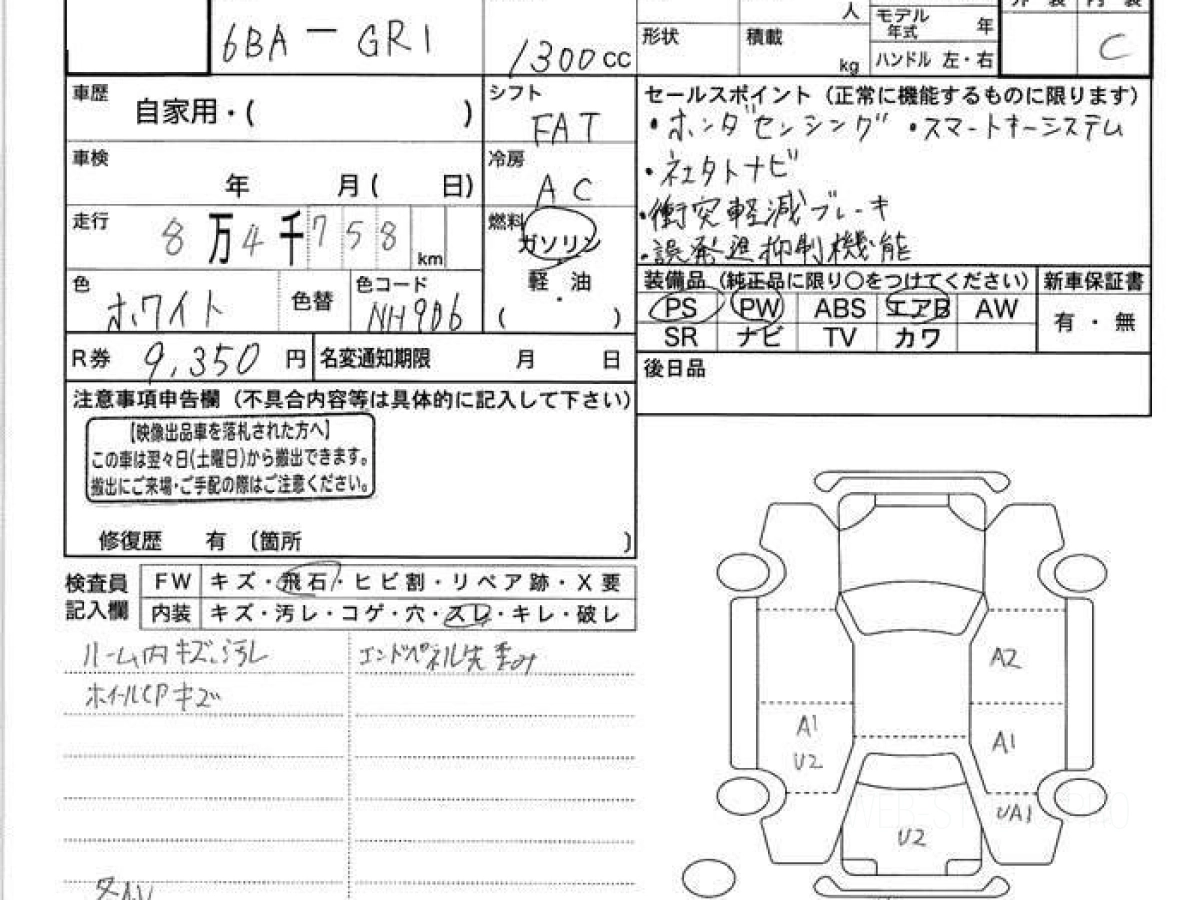 6BA-GR1
1300 cc
人
kg
形状
積載
モデル
年式
年
ハンドル 左・右
外 装
内 装
C
車歴
自家用・( )
シフト
FAT
車検
年 月( 日)
冷房
AC
走行
8万4千758km
燃料
ガソリン
軽・油
( )
色
ホワイト
色替
色コード
NH906
R券 9,350 円
名変通知期限 月 日
セールスポイント(正常に機能するものに限ります)
・ホンダセンシング ・スマートキーシステム
・社外ナビ
・衝突軽減ブレーキ
・誤発進抑制機能
装備品(純正品に限り○をつけてください)
新車保証書
PS PW ABS エアB AW
有・無
SR ナビ TV カワ
後日品
注意事項申告欄(不具合内容等は具体的に記入して下さい)
【映像出品車を落札された方へ】
この車は翌々日(土曜日)から搬出できます。
搬出にご来場・ご手配の際はご注意ください。
修復歴 有 〔箇所 〕
検査員
記入欄
FW キズ・飛石・ヒビ割・リペア跡・X要
内装 キズ・汚レ・コゲ・穴・スレ・キレ・破レ
ルーム内キズ、汚レ
エンドパネル先歪み
ホイールCPキズ
A2
A1
U2
A1
UA1
U2